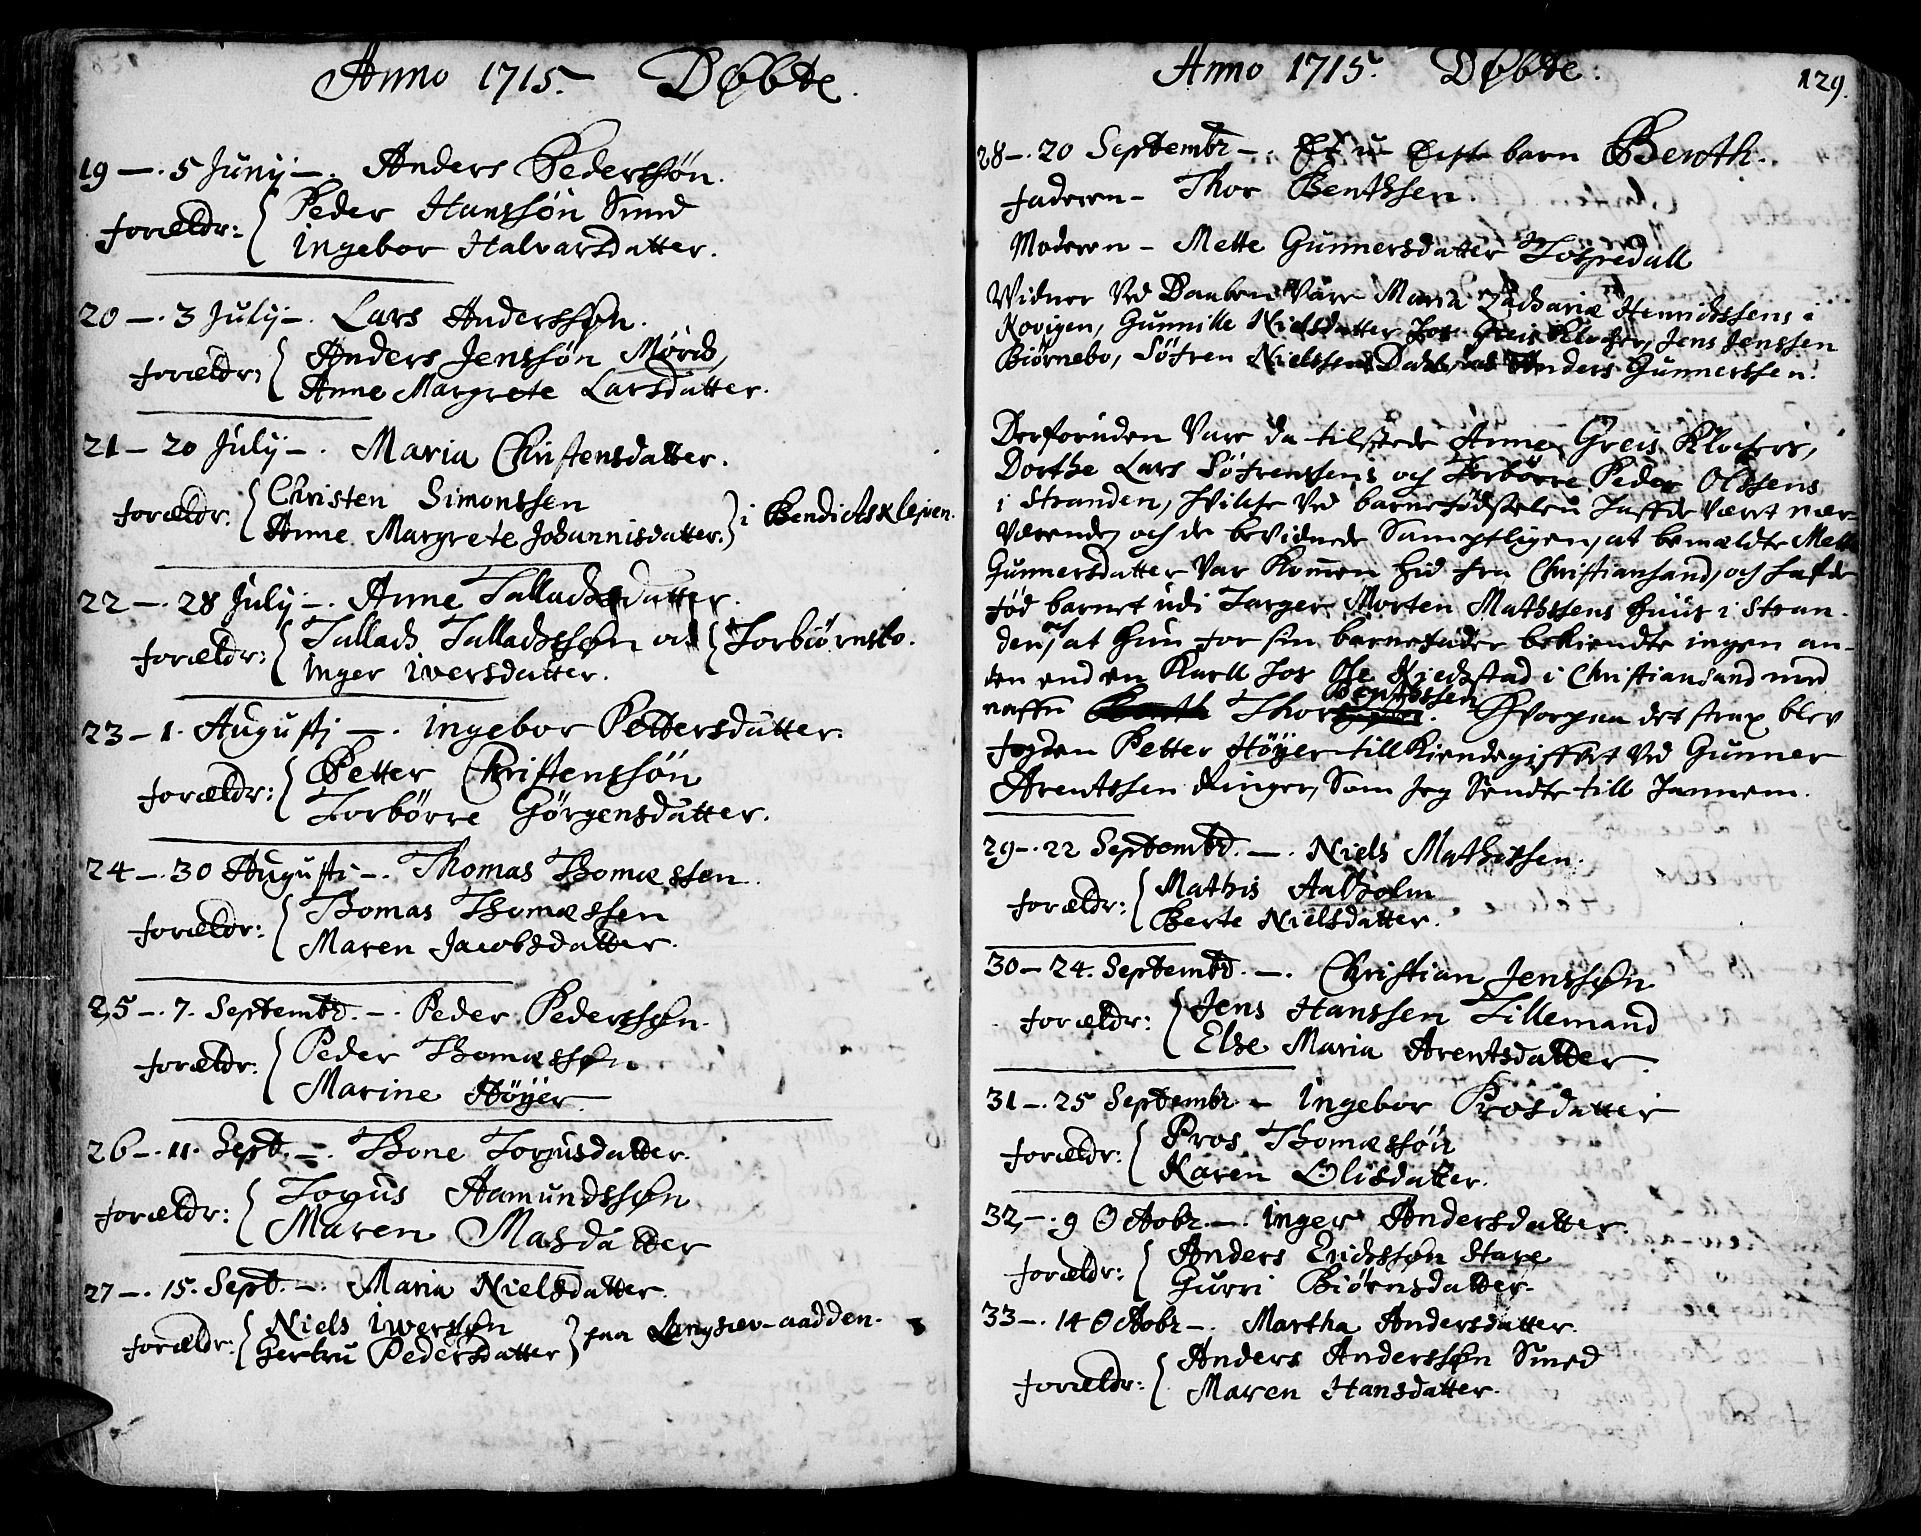 Anno 1715. Døbte.
19 —. 5 Junij —. Anders Pederssøn.
forældr: Peder Hanssøn Smed
Ingebor Halvarsdatter.
20 —. 3 Julij —. Lars Anderssøn.
forældr: Anders Jenssøn Mørch,
Anne Margrete Larsdatter.
21 — 20 Julij —. Maria Christensdatter.
forældr. Christen Simonssen
Anne Margrete Johannisdatter. i Bendictsklejven.
22 —. 28 Julij —. Anne Talladsdatter.
forældr: Tallach Talladssøn Torbiørnsbo.
Inger Iversdatter.
23 — 1. Augusti —. Ingebor Pettersdatter.
forældr: Petter Christenssøn
Torbörre Görgensdatter.
24 —. 30 Augusti —. Thomas Thomæssen.
forældr: Thomas Thomæssen
Maren Jacobsdatter.
25 —. 7. Septembr. —. Peder Pederssøn.
forældr: Peder Thomæssøn
Marine Höyer.
26 —. 11. Sept. —. Thone Torjusdatter.
forældr: Torjus Aamundssøn
Maren Masdatter
27 —. 15. Sept. —. Maria Nielsdatter.
forældr: Niels Iverssøn
Gertru Pedersdatter paa Langsæv-aadden.
Anno 1715. Døbte: 129.
28 —. 20 Septembr —. Et u-Echte barn Benth.
faderen — Thor Benthssen.
Moderen — Mette Gunnersdatter
Widner ved Daaben vare Maria Zachariæ Henrichssens i
Kovigen, Gunnille Nielsdatter hos Greis Klocher, Jens Jenssen
Biørnebo, Söfren Nielssens Anders Gunnerssen.
Desforuden vare da tilstede Anne Greis Klochers,
Dorthe Lars Söfrenssens och Torbörre Peder Olssens
i Stranden, hvilche ved barnefödselen haffde været nær-
værende, och de bevidnede Samptligen, at bemældte Mette
Gunnersdatter var kommen hid fra Christiansand, och hafde
fød barnet udi Morten Mathssens huus i Stran-
den, at hun for sin barnefader bekiendte ingen an-
den end en Karll hos Ole Kiedstad i Christiansand med
naffn Thor Benthssen. Hvorpaa det strax blev
fogden Petter Höyer till kiendegiffvet ved Gunner
Arentssen Ringer, Som jeg Sendte till hannem.
29 —. 22 Septembr. —. Niels Mathissen.
forældr: Mathis Aalholm
Berte Nielsdatter.
30 — 24. Septembr. —. Christian Jenssøn
forældr: Jens Hanssen Tillemand
Else Maria Arentsdatter.
31 —. 25 Septembr. — Ingebor Prosdatter
forældr: Pros Thomæssön
Karen Olisdatter.
32 —. 9 Octobr. —. Inger Andersdatter.
forældr: Anders Erichssøn Stare
Gurri Biörnsdatter.
33 —. 14 Octobr —. Martha Andersdatter.
forældr: Anders Anderssøn Smed
Maren Hansdatter.